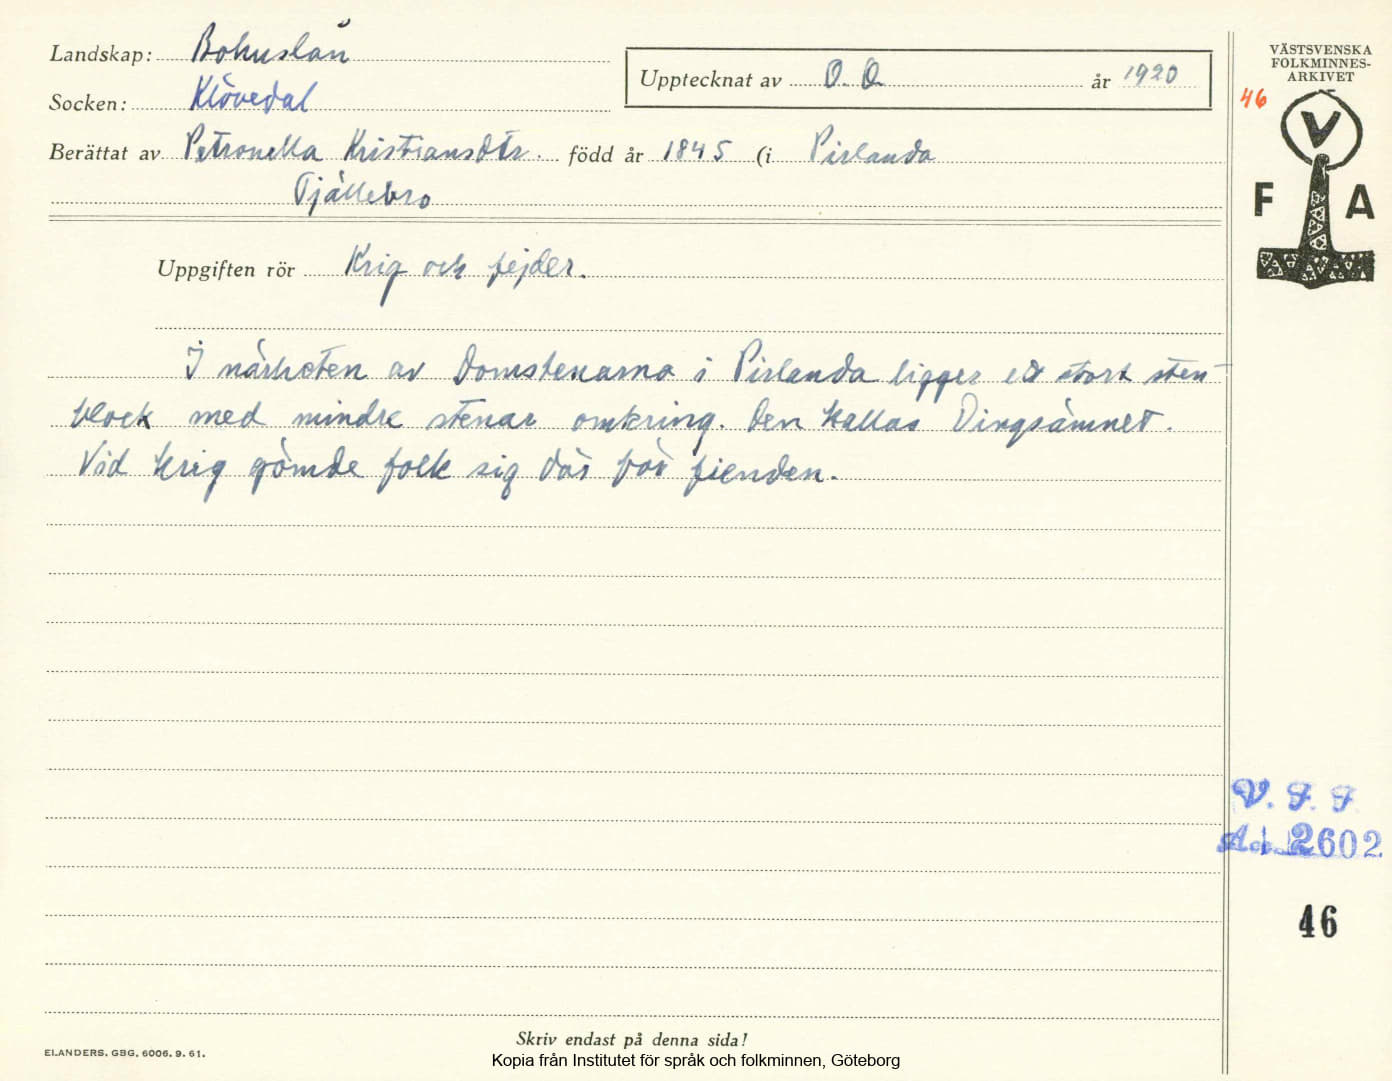 Landskap: Bohuslän
Socken: Klövedal
Upptecknat av O. O. år 1920
Berättat av Petronella Kristiansdtr. född år 1845 (i Pirlanda
Tjällebro
Uppgiften rör Krig och fejder.
I närheten av Domstenarna i Pirlanda ligger ett stort sten-
block med mindre stenar omkring. Den kallas Dingsämnet.
Vid krig gömde folk sig där för fienden.
Skriv endast på denna sida!
ELANDERS. GBG, 6006. 9. 61.
Kopia från Institutet för språk och folkminnen, Göteborg
VÄSTSVENSKA
FOLKMINNES-
ARKIVET
46
V
F A
V. F. F.
2602
46